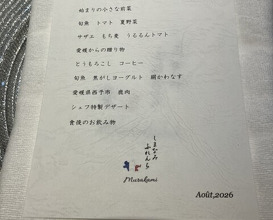 始まりの小さな前菜
旬魚 トマト 夏野菜
サザエ もち麦 うるるんトマト
愛媛からの贈り物
とうもろこし コーヒー
旬魚 焦がしヨーグルト 絹かわなす
愛媛県西予市 鹿肉
シェフ特製デザート
食後のお飲み物
しまなみ
ふれんち
Murakami
Août,2026